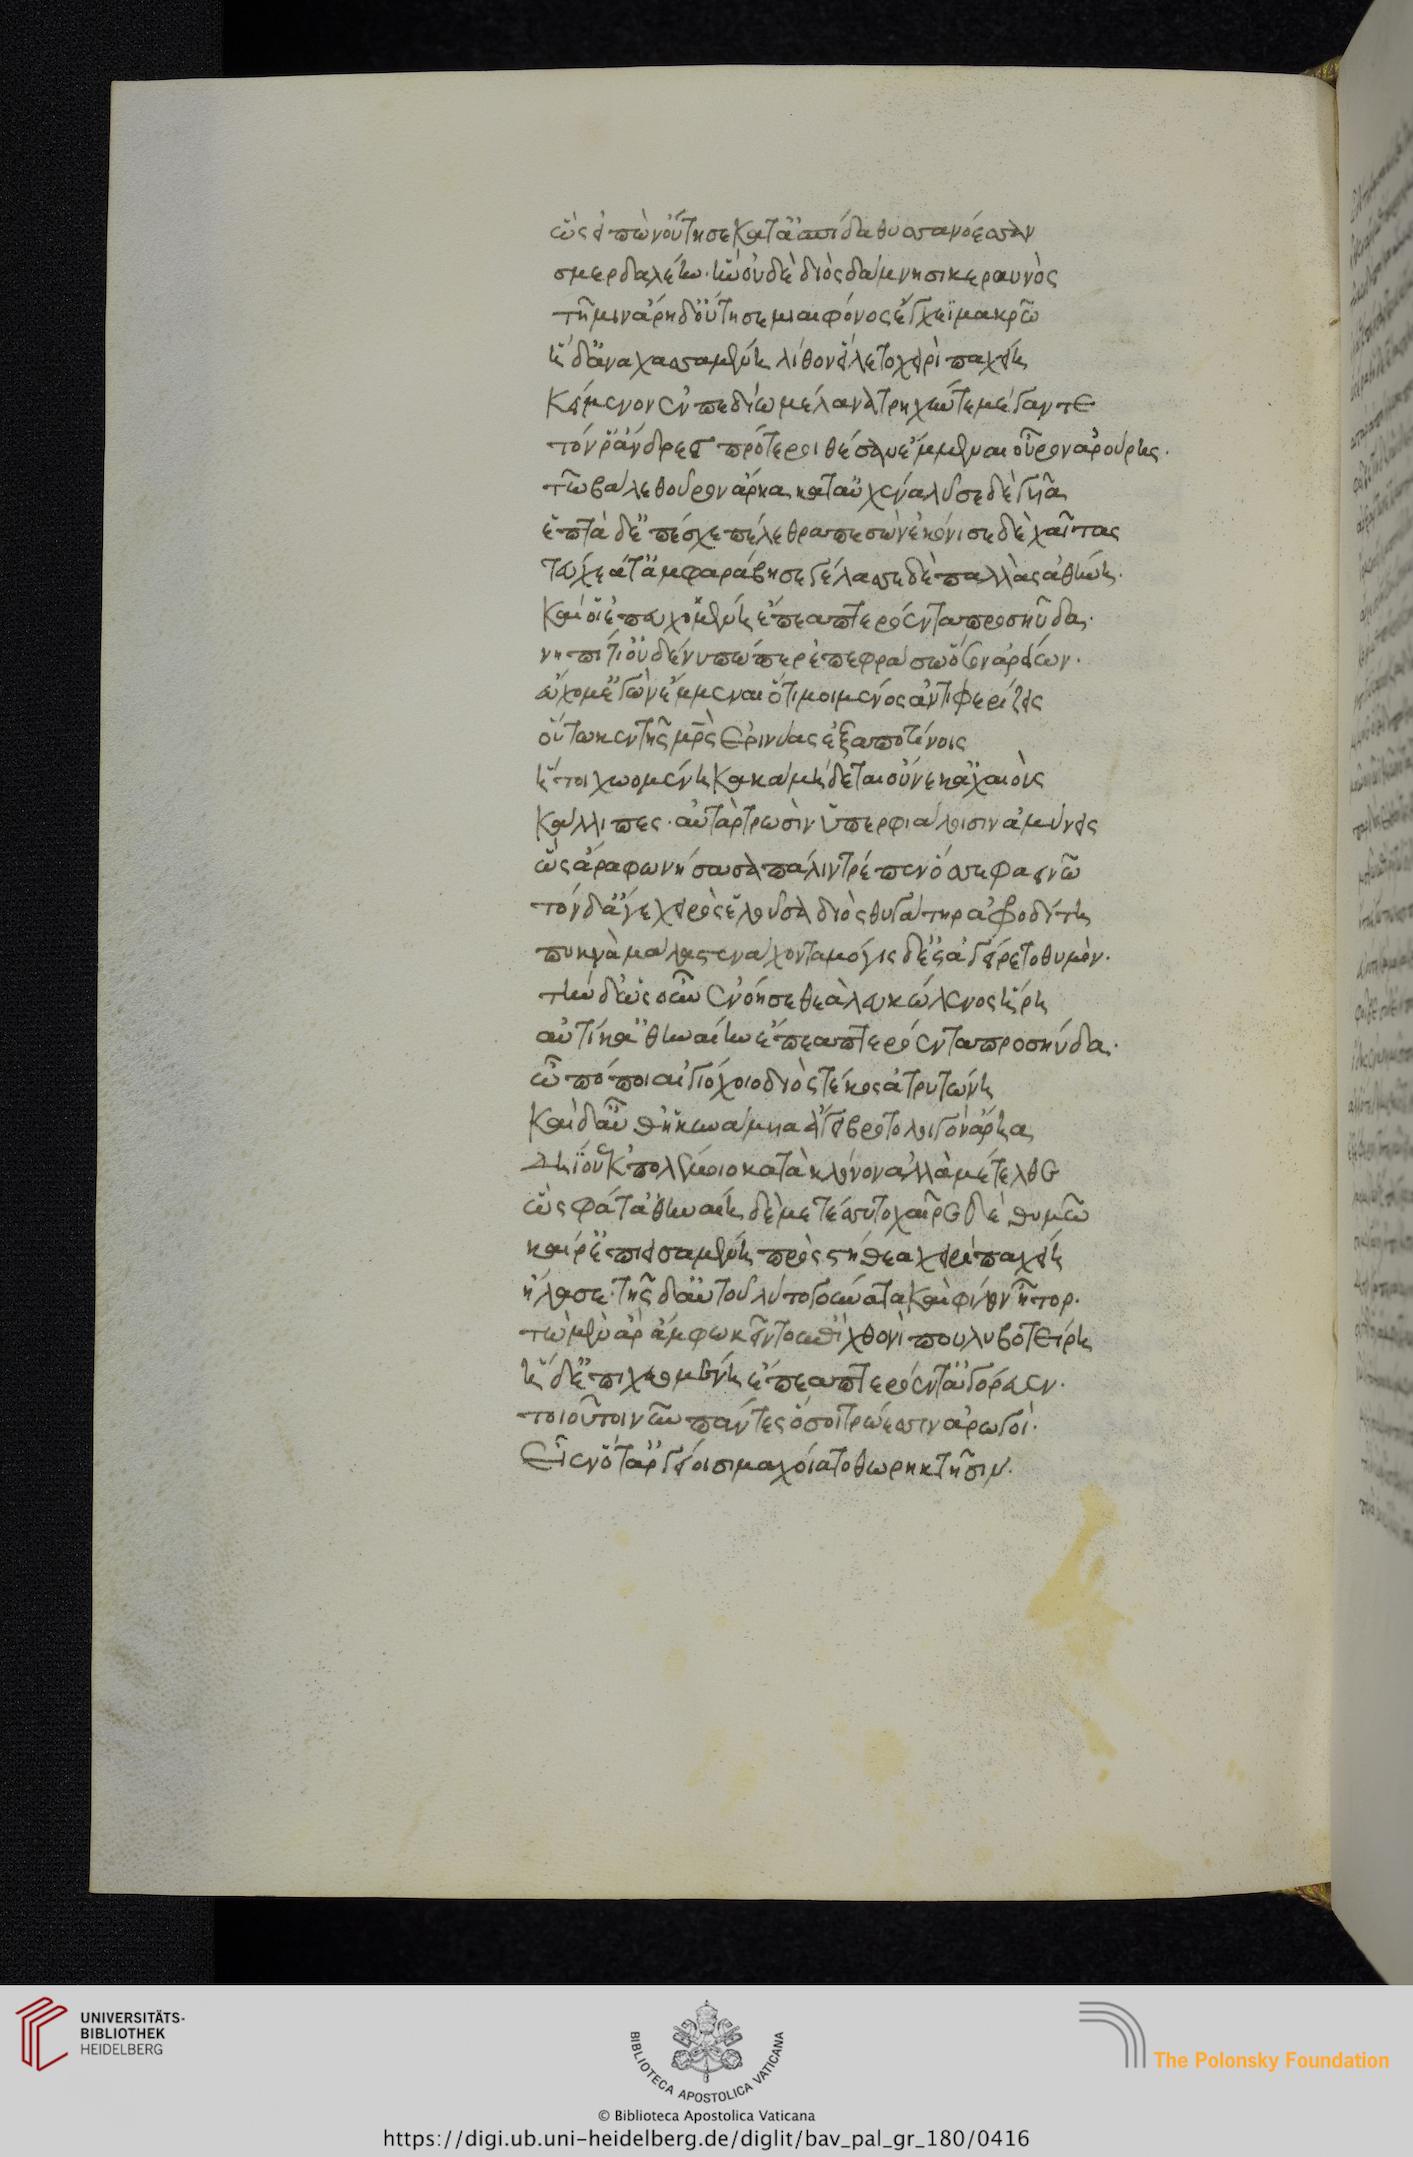 ὣς εἰπὼν οὔτησε κατ' ἀσπίδα θυσσανόεσσαν
σμερδαλέην· ἣν οὐδὲ διὸς δάμνησι κεραυνὸς
τῆ μιν ἄρης δ' οὔτησε μιαιφόνος ἔγχεϊ μακρῶ
ἡ δ' ἀναχασσαμένη λίθον εἵλετο χειρὶ παχείη
κείμενον ἐν πεδίω μέλανα τρηχύν τε μέγαν τε
τόν ῥ' ἄνδρες πρότεροι θέσαν ἔμμεναι οὖρον ἀρούρης·
τῶ βάλε θοῦρον ἄρηα κατ' αὐχένα λῦσε δὲ γυῖα
ἑπτὰ δ' ἐπέσχε πέλεθρα πεσὼν ἐκόνισε δὲ χαίτας
τεύχεά τ' ἀμφαράβησε γέλασσε δὲ παλλὰς ἀθήνη·
καί οἱ ἐπευχομένη ἔπεα πτερόεντα προσηύδα·
νηπύτι' οὐδέ νύ πώ περ ἐπεφράσω ὅσσον ἀρείων·
εὔχομ' ἐγὼν ἔμμεναι ὅτι μοι μένος ἀντιφερίζεις
οὕτω κεν τῆς μρὸς ἐρινύας ἐξαποτίνοις
ἥ τοι χωομένη κακὰ μήδεται οὕνεκ' ἀχαιοὺς
κάλλιπες· αὐτὰρ τρωσὶν ὑπερφιάλοισιν ἀμύνεις
ὣς ἄρα φωνήσασα πάλιν τρέπεν ὄσσε φαεινῶ
τόν δ' ἄγε χειρὸς ἑλοῦσα διὸς θυγάτηρ ἀφροδίτη
πυκνὰ μάλα στενάχοντα μόγις δ' ἐσαγείρετο θυμὸν·
τὴν δ' ὡς οὖν ἐνόησε θεὰ λευκώλενος ἥρη
αὐτίκ' ἀθηναίην ἔπεα πτερόεντα προσηύδα·
ὢ πόποι αἰγιόχοιο διὸς τέκος ἀτρυτώνη
καὶ δ' αὖθ' ἡ κυνάμυια ἄγει βροτολοιγὸν ἄρηα
δηΐου ἐκ πολέμοιο κατὰ κλόνον ἀλλὰ μέτελθε
ὣς φάτ' ἀθηναίη δὲ μετέσσυτο χαῖρε δὲ θυμῶ
καί ῥ' ἐπιεισαμένη πρὸς στήθεα χειρὶ παχείη
ἤλασε· τῆς δ' αὐτοῦ λύτο γούνατα καὶ φίλον ἦτορ·
τὼ μὲν ἄρ ἄμφω κεῖντο ἐπὶ χθονὶ πουλυβοτείρη
ἡ δ' ἐπευχομένη ἔπεα πτερόεντ' ἀγόρευεν·
τοιοῦτοι νῦν πάντες ὅσοι τρώεσσιν ἀρωγοὶ·
εἶεν ὅτ' ἀργείοισι μαχοίατο θωρηκτῆσιν·
UNIVERSITÄTS-
BIBLIOTHEK
HEIDELBERG
BIBLIOTECA APOSTOLICA VATICANA
The Polonsky Foundation
© Biblioteca Apostolica Vaticana
https://digi.ub.uni-heidelberg.de/diglit/bav_pal_gr_180/0416